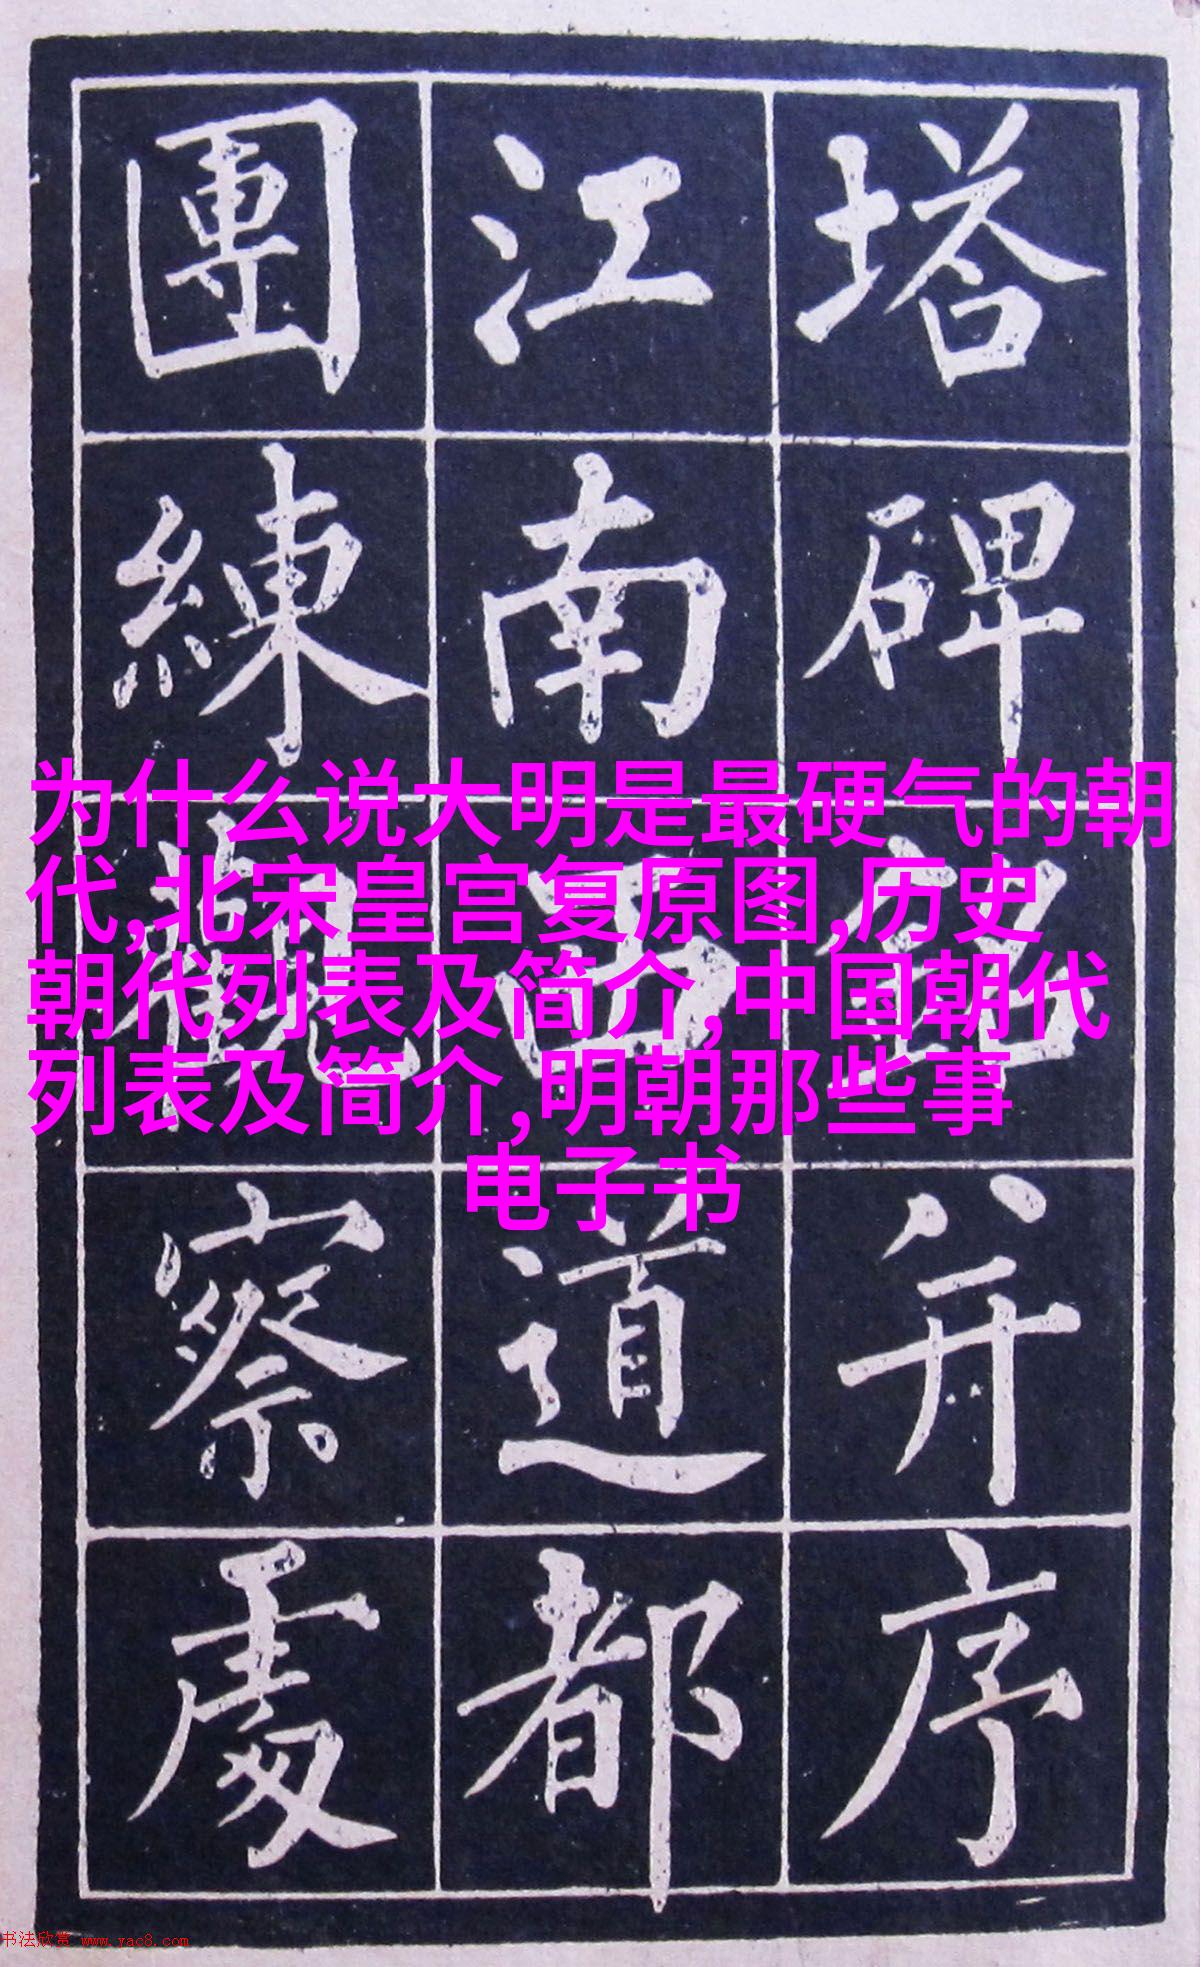 塔碑銘并序
江南西道都
團練觀察處
为什么说大明是最硬气的朝
代,北宋皇宫复原图,历史
朝代列表及简介,中国朝代
列表及简介,明朝那些事
电子书
书法欣赏 www.yac8.com